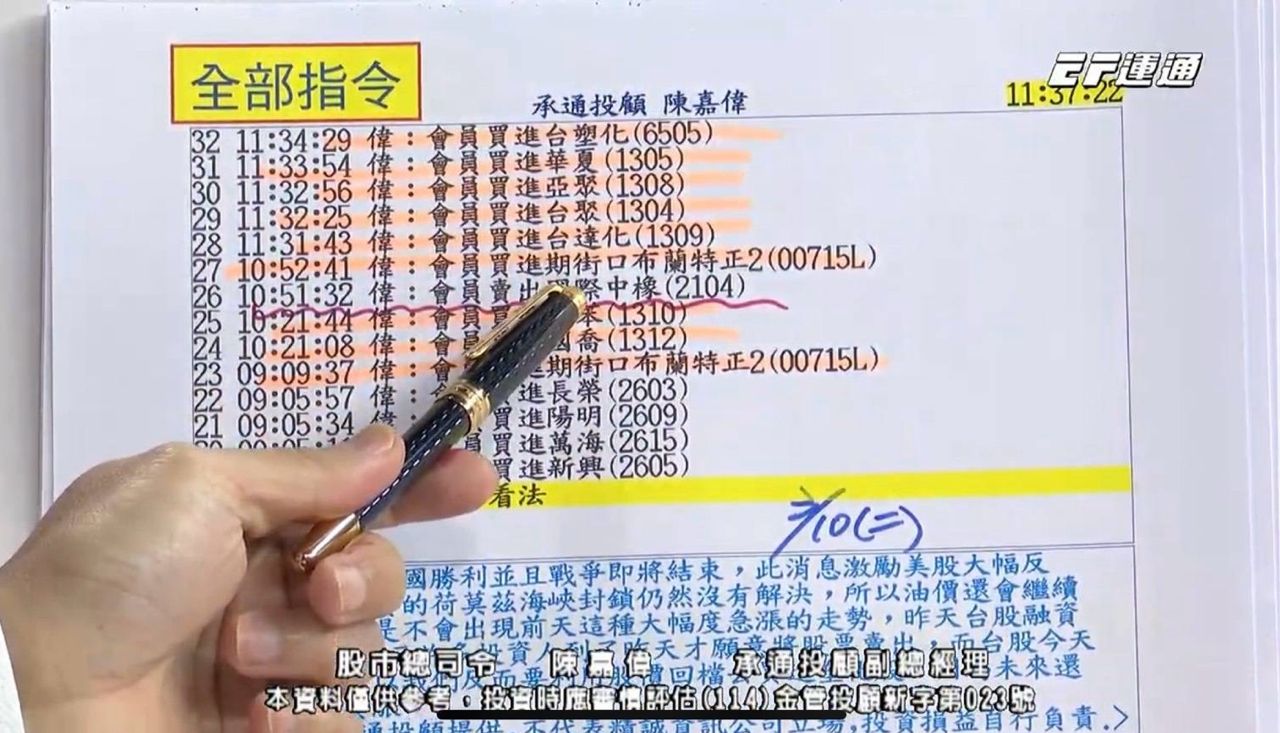 全部指令
EF運通
承通投顧 陳嘉偉
11:37:22
32 11:34:29 偉:會員買進台塑化(6505)
31 11:33:54 偉:會員買進華夏(1305)
30 11:32:56 偉:會員買進亞聚(1308)
29 11:32:25 偉:會員買進台聚(1304)
28 11:31:43 偉:會員買進台達化(1309)
27 10:52:41 偉:會員買進期街口布蘭特正2(00715L)
26 10:51:32 偉:會員賣出國際中橡(2104)
25 10:21:44 偉:會員買 苯(1310)
24 10:21:08 偉:會 喬(1312)
23 09:09:37 偉: 進期街口布蘭特正2(00715L)
22 09:05:57 偉: 進長榮(2603)
21 09:05:34 買進陽明(2609)
買進萬海(2615)
買進新興(2605)
看法
3/10(二)
國勝利並且戰爭即將結束,此消息激勵美股大幅反
的荷莫茲海峽封鎖仍然沒有解決,所以油價還會繼續
是不會出現前天這種大幅度急漲的走勢,昨天台股融資
投資人到了昨天才願意將股票賣出,而台股今天
股市總司令 陳嘉偉 承通投顧副總經理
未來還
本資料僅供參考,投資時應審慎評估(114)金管投顧新字第023號
通投顧提供,不代表精誠資訊公司立場,投資損益自行負責.>